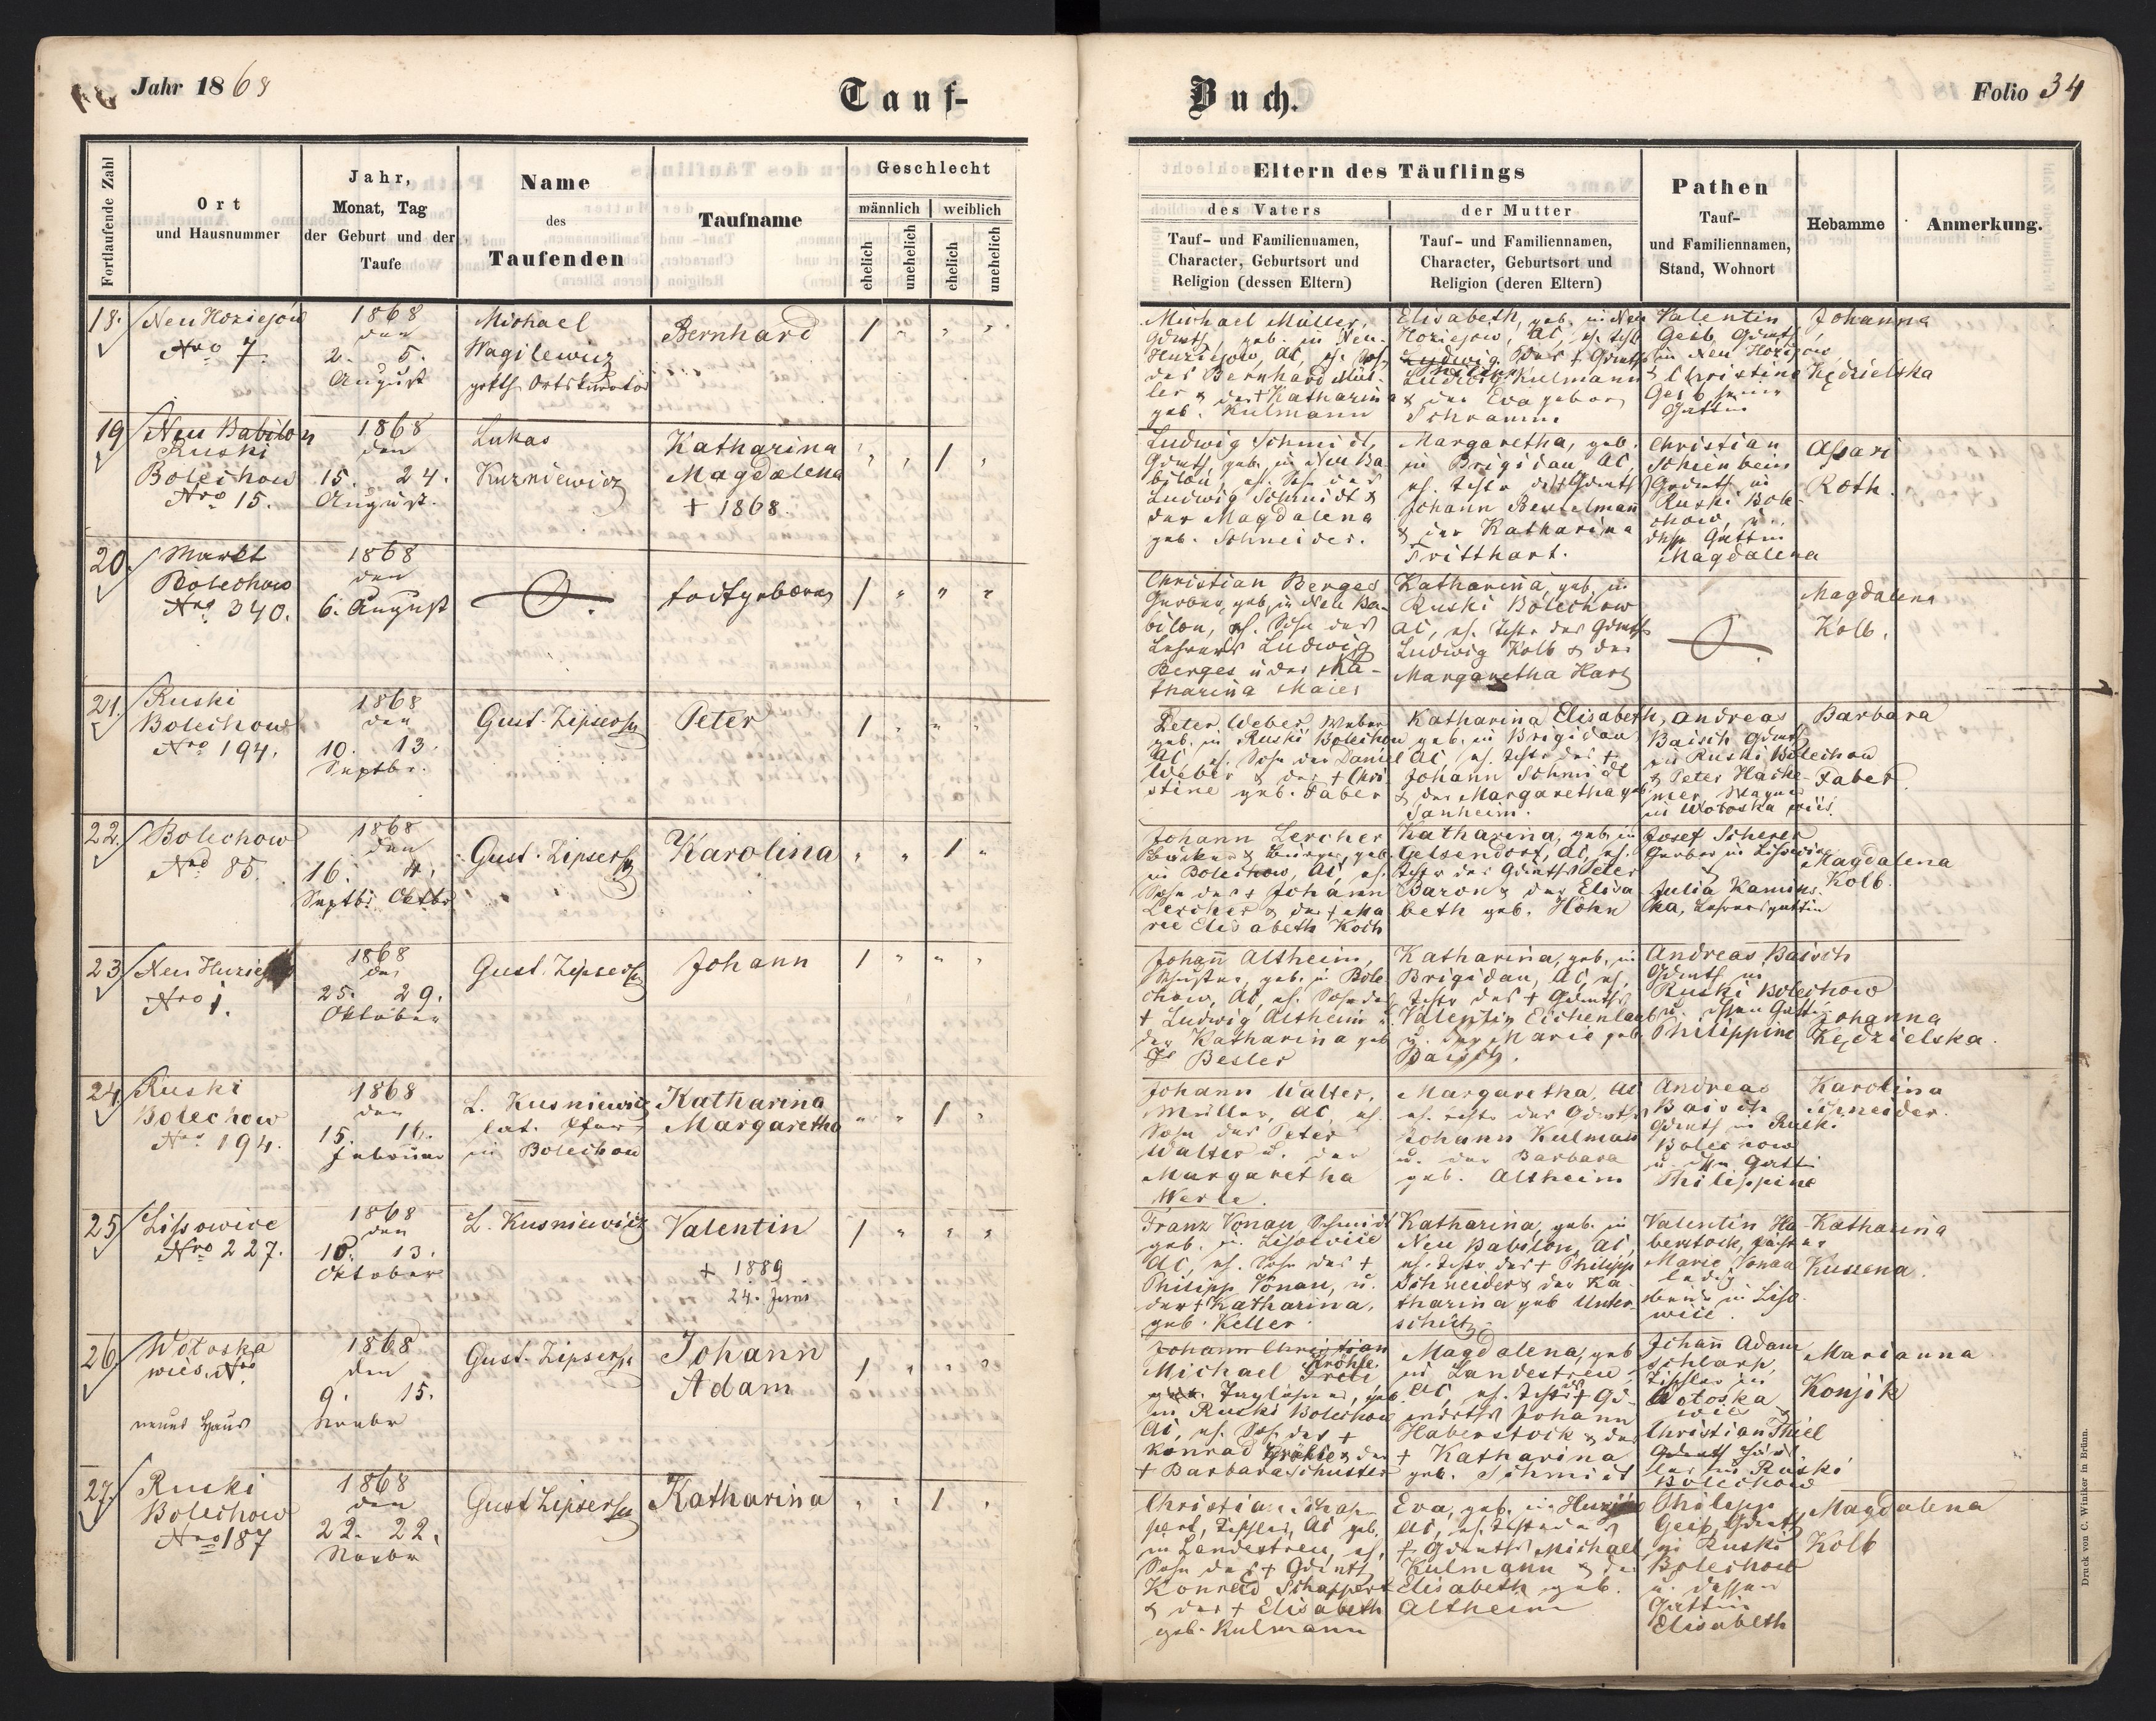 Jahr 1868
Tauf-
Buch.
Folio 34
Fortlaufende Zahl
Ort
und Hausnummer
Jahr,
Monat, Tag
der Geburt und der
Taufe
Name
des
Taufenden
Taufname
Geschlecht
männlich
weiblich
ehelich
unehelich
ehelich
unehelich
Eltern des Täuflings
des Vaters
Tauf- und Familiennamen,
Character, Geburtsort und
Religion (dessen Eltern)
der Mutter
Tauf- und Familiennamen,
Character, Geburtsort und
Religion (deren Eltern)
Pathen
Tauf-
und Familiennamen,
Stand, Wohnort
Hebamme
Anmerkung.
18.
Neu Hoziejów
Nro 7.
1868
den
2. 5.
August
Michael
Wagilewicz
Bernhard
1 " " "
Michael Müller,
geb. in Neu-
des Bernhard Mül-
ler & der + Katharina
geb. Kulmann
Elisabeth, geb. in Neu
Hoziejow, AC, eh. Tchtr
Ludwig Kulmann
& der Eva gebor.
Schramm
Valentin
Geib, Grdwth
in Neu Hoziejow
& Christine
Geib seine
Gattin
Johanna
Kędzielska
19
Neu Babilon
Ruski
Bolechow
Nro 15.
1868
den
15. 24.
August.
Lukas
Kuzniewicz
Katharina
Magdalena
+ 1868.
" " 1 "
Ludwig Schmidt,
Grdwth, geb. in Neu Ba-
bilon, eh. Sohn des
Ludwig Schmidt &
der Magdalena
geb. Schneider.
Margaretha, geb.
in Brigidau, AC,
& der Katharina
Tritthart.
Christian
Schienbein
Grdwth in
Ruski Bole-
chow, u.
dess Gattin
Magdalena
Roth.
20.
Markt
Bolechow
Nro 340.
1868
den
6. August
todtgeboren
1 " " "
Christian Berges
Gerber, geb. in Neu Ba-
bilon, eh. Sohn des
Lehrers Ludwig
Berges u der Ka-
tharina Maier
Katharina, geb. in
Ruski Bolechow
AC, eh. Tchtr des Grdwth
Ludwig Kolb & der
Margaretha Harz
Magdalena
Kolb.
21.
Ruski
Bolechow
Nro 194.
1868
den
10. 13.
Septbr.
Gust. Zipser
Peter
1 " " "
Peter Weber, Weber
geb. in Ruski Bolechow
AC, eh. Sohn des Daniel
Weber & der + Chri-
stine geb. Faber
Katharina Elisabeth,
geb. in Brigidau
AC, eh. Tchtr des +
Johann Schmidt
& der Margaretha geb
Sanheim.
Andreas
Baisch Grdwth
in Ruski Bolechow
& Peter Hacke-
mer, Wagner
in Wołoska wies.
Barbara
Faber.
22.
Bolechow
Nro 85.
1868
den
16. 4.
Septbr. Oktbr
Gust. Zipser
Karolina
" " 1 "
Johann Lercher
Bäcker & Bürger, geb.
in Bolechow, AC, eh.
Sohn des + Johann
Lercher & der + Ma
rie Elisabeth Koch
Katharina, geb. in
Gelsendorf, AC, eh.
Tchtr des Grdwths Peter
Baron & der Elisa
beth geb. Höhn
Josef Scherer
Gerber in Lisowice
Julia Kamins
ka, Lehrersgattin
Magdalena
Kolb.
23
Neu
Nro 1.
1868
den
25. 29.
Oktober
Gust. Zipser
Johann
1 " " "
Johann Altheim,
Schuster, geb. in Bole
chow, AC, eh. Sohn des
+ Ludwig Altheim u.
der Katharina geb
Besler
Katharina, geb. in
Brigidau, AC, eh.
Tchtr des + Grdwths
Valentin Eichenlaub
u. der Marie geb.
Baisch.
Andreas Baisch
Grdwth in
Ruski Bolechow
u. dessen Gattin
Philippine
Johanna
Kędzielska.
24.
Ruski
Bolechow
Nro 194.
1868
den
15. 16.
Februar
L. Kusniewicz
lat. Pfarr
in Bolechow
Katharina
Margaretha
" " 1 "
Johann Walter,
Müller, AC, eh.
Sohn des Peter
Walter u. der
Margaretha
Werle.
Margaretha, AC
eh. Tchtr des Grdwth
Johann Kulmann
u. der Barbara
geb. Altheim
Andreas
Baisch
Grdwth in Ruski
Bolechow
u. dssn Gatti
Philippine
Karolina
Schneider.
25
Lissowice
Nro 227.
1868
den
10. 13.
Oktober
L. Kusniewicz
Valentin
+ 1889
24. Juni
1 " " "
Franz Vonau, Schmidt
geb. in Lisowice
AC, eh. Sohn des +
Philipp Vonau, u.
der + Katharina,
geb. Keller.
Katharina, geb. in
Neu Babilon, AC,
eh. Tchtr des + Philipp
Schneider & der Ka-
tharina geb Unter-
schütz.
Valentin Ha-
berstock, Pächter
Marie Vonau
ledig
beide in Liso-
wice.
Katharina
Kussena.
26
Wołoska
wieś, Nro
neues Haus
1868
den
9. 15.
Novbr
Gust. Zipser
Johann
Adam
1 " " "
Johann Christian
Michael Fröhle
Taglöhner, geb.
in Ruski Bolechow
AC, eh. Sohn des +
Konrad Fröhle & der
+ Barbara Schuster
Magdalena, geb
in Landestreu,
AC, eh. Tchtr des + Gd-
wirths Johann
Haberstock & der
+ Katharina
geb. Schmidt
Johann Adam
Schlarp,
Tischler in
Wołoska
wies &
Christian Thiel
in Ruski
Bolechow
Marianna
Konjik
27.
Ruski
Bolechow
Nro 187
1868
den
22. 22.
Novbr
Gust Zipser
Katharina
" " 1 "
Christian Schap-
pert, Tischler, AC geb.
in Landestreu, eh.
Sohn des + Grdwth
Konrad Schappert
& der + Elisabeth
geb. Kulmann
Eva, geb. in
AC, eh. Tchtr des
+ Grdwths Michael
Kulmann & der
Elisabeth geb.
Altheim
Philipp
Geib, Grdwth
in Ruski
Bolechow
u. dessen
Gattin
Elisabeth
Magdalena
Kolb
Druck von C. Winiker in Brünn.